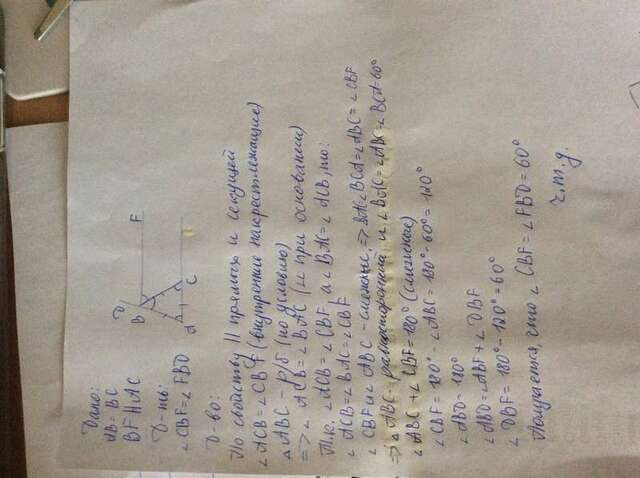 Дано:
AB=BC
BF || AC
Д-ть:
∠CBF=∠FBD
Д-во:
D
B
F
A
C
По свойству || прямых и секущей
∠ACB=∠CBF (внутренние накрестлежащие)
△ABC - р/б (по условию)
=> ∠ACB=∠BAC (∠ при основании)
Т.к. ∠ACB=∠CBF, а ∠BAC=∠ACB, то:
∠ACB=∠BAC=∠CBF
∠CBF и ∠ABC - смежные, => ∠BCA=∠ABC=∠CBF
=> △ABC - равносторонний и ∠BAC=∠ABC=∠BCA=60°
∠ABC+∠CBF=180° (смежные)
∠CBF=180°-∠ABC=180°-60°=120°
∠ABD=180°
∠ABD=∠ABF+∠DBF
∠DBF=180°-120°=60°
Получается, что ∠CBF=∠FBD=60°
ч.т.д.